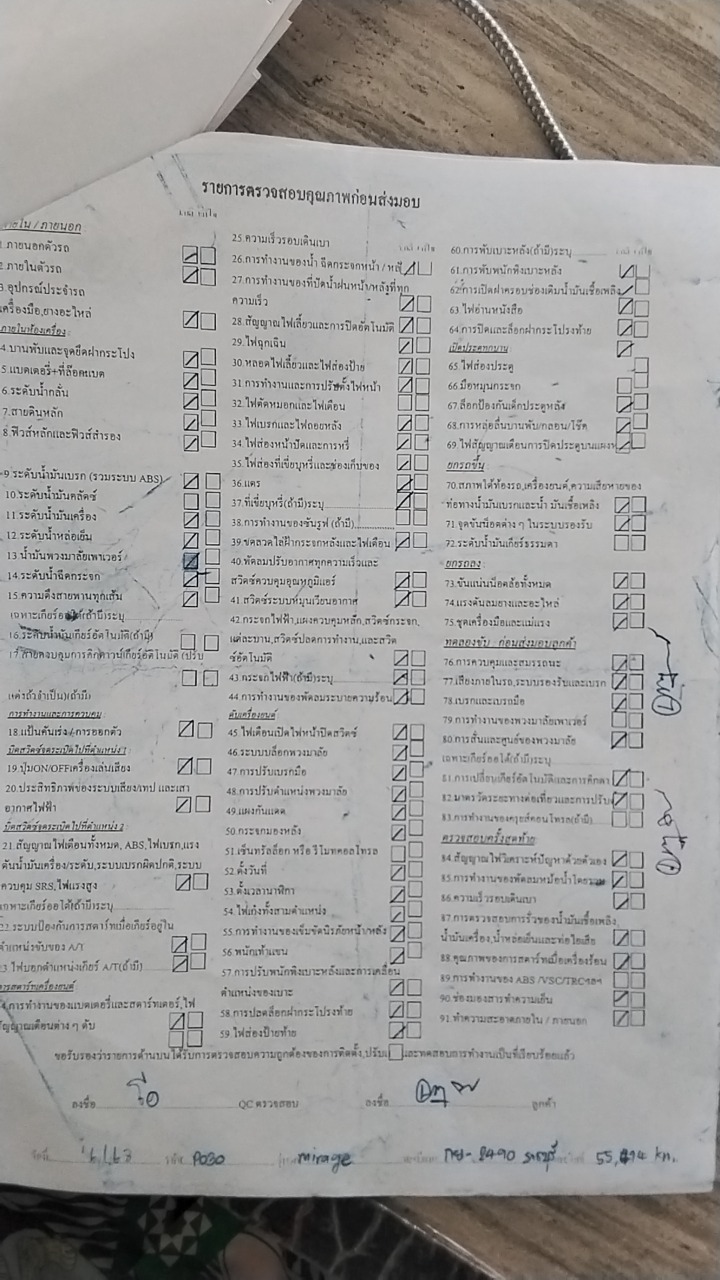 รายการตรวจสอบคุณภาพก่อนส่งมอบ
ภายนอกตัวรถ
ภายในตัวรถ
3.อุปกรณ์ประจำรถ
เครื่องมือ,ยางอะไหล่
ภายในห้องเครื่อง:
4.บานพับและจุดยึดฝากระโปรง
5.แบตเตอรี่+ที่ล็อคแบต
6.ระดับน้ำกลั่น
7.สายดินหลัก
8.ฟิวส์หลักและฟิวส์สำรอง
9 ระดับน้ำมันเบรก (รวมระบบ ABS)
10.ระดับน้ำมันคลัตช์
11.ระดับน้ำมันเครื่อง
12.ระดับน้ำหล่อเย็น
13.น้ำมันพวงมาลัยเพาเวอร์
14.ระดับน้ำฉีดกระจก
15.ความตึงสายพานทุกเส้น
16.ระดับน้ำมันเกียร์อัตโนมัติ(ถ้ามี)
การทำงานและการควบคุม
18.แป้นคันเร่ง / การออกตัว
บิดสวิตช์จุดระเบิดไปที่ตำแหน่ง 1
19.ปุ่มON/OFFเครื่องเล่นเสียง
20.ประสิทธิภาพช่องระบบเสียง/เทป และเสา
อากาศไฟฟ้า
บิดสวิตช์จุดระเบิดไปที่ตำแหน่ง 2
21.สัญญาณไฟเตือนทั้งหมด, ABS,ไฟเบรก,แรง
ดันน้ำมันเครื่อง/ระดับ,ระบบเบรกผิดปกติ,ระบบ
ควบคุม SRS,ไฟแรงสูง
22.ระบบป้องกันการสตาร์ทเมื่อเกียร์อยู่ใน
ตำแหน่งขับของ A/T
ไฟบอกตำแหน่งเกียร์ A/T(ถ้ามี)
การสตาร์ทเครื่องยนต์
24.การทำงานของแบตเตอรี่และสตาร์ทเตอร์,ไฟ
สัญญาณเตือนต่าง ๆ ดับ
25.ความเร็วรอบเดินเบา
26.การทำงานของน้ำ ฉีดกระจกหน้า / หลัง
27.การทำงานของที่ปัดน้ำฝนหน้า/หลังที่ทุก
ความเร็ว
28.สัญญาณไฟเลี้ยวและการปิดอัตโนมัติ
29.ไฟฉุกเฉิน
30.หลอดไฟเลี้ยวและไฟส่องป้าย
31.การทำงานและการปรับตั้งไฟหน้า
32.ไฟตัดหมอกและไฟเตือน
33.ไฟเบรกและไฟถอยหลัง
34.ไฟส่องหน้าปัดและการหรี่
35.ไฟส่องที่เขี่ยบุหรี่และช่องเก็บของ
36.แตร
37.ที่เขี่ยบุหรี่(ถ้ามี)ระบุ
38.การทำงานของซันรูฟ (ถ้ามี)
39.ขดลวดไล่ฝ้ากระจกหลังและไฟเตือน
40.พัดลมปรับอากาศทุกความเร็วและ
สวิตช์ควบคุมอุณหภูมิแอร์
41.สวิตช์ระบบหมุนเวียนอากาศ
42.กระจกไฟฟ้า,แผงควบคุมหลัก,สวิตช์กระจก,
แต่ละบาน,สวิตช์ปลดการทำงาน,และสวิต
ช์อัตโนมัติ
43 กระจกไฟฟ้า(ถ้ามี)ระบุ
44 การทำงานของพัดลมระบายความร้อน
ดับเครื่องยนต์
45 ไฟเตือนเปิดไฟหน้าปิดสวิตช์
46.ระบบล็อกพวงมาลัย
47 การปรับเบรกมือ
48.การปรับตำแหน่งพวงมาลัย
49.แผงกันแดด
50.กระจกมองหลัง
51.เซ็นทรัลล็อก หรือ รีโมทคอลโทรล
52.ตั้งวันที่
53.ตั้งเวลานาฬิกา
54.ไฟเก๋งทั้งสามตำแหน่ง
55.การทำงานของเข็มขัดนิรภัยหน้า/หลัง
56.พนักเท้าแขน
57.การปรับพนักพิงเบาะหลังและการเคลื่อน
ตำแหน่งของเบาะ
58.การปลดล็อกฝากระโปรงท้าย
59.ไฟส่องป้ายท้าย
60.การพับเบาะหลัง(ถ้ามี)ระบุ
61.การพับพนักพิงเบาะหลัง
62.การเปิดฝาครอบช่องเติมน้ำมันเชื้อเพลิง
63.ไฟอ่านหนังสือ
64.การปิดและล็อกฝากระโปรงท้าย
เปิดประตูทุกบาน
65.ไฟส่องประตู
66.มือหมุนกระจก
67.ล็อกป้องกันเด็กประตูหลัง
68.การหล่อลื่นบานพับ/กลอน/โช๊ค
69.ไฟสัญญาณเตือนการปิดประตูบนแผงห
ยกรถขึ้น
70.สภาพใต้ท้องรถ,เครื่องยนต์,ความเสียหายของ
ท่อทางน้ำมันเบรกและน้ำ มันเชื้อเพลิง
71.จุดขันน็อตต่าง ๆ ในระบบรองรับ
72.ระดับน้ำมันเกียร์ธรรมดา
ยกรถลง
73.ขันแน่นน็อตล้อทั้งหมด
74.แรงดันลมยางและอะไหล่
75.ชุดเครื่องมือและแม่แรง
ทดลองขับ : ก่อนส่งมอบลูกค้า
76.การควบคุมและสมรรถนะ
77.เสียงภายในรถ,ระบบรองรับและเบรก
78.เบรกและเบรกมือ
79.การทำงานของพวงมาลัยเพาเวอร์
80.การสั่นและศูนย์ของพวงมาลัย
เฉพาะเกียร์ออโต้(ถ้ามี)ระบุ
81.การเปลี่ยนเกียร์อัตโนมัติและการคิกดา
82.มาตรวัดระยะทางต่อเที่ยวและการปรับ
83.การทำงานของครูสคอนโทรล(ถ้ามี)
ตรวจสอบครั้งสุดท้าย
84.สัญญาณไฟวิเคราะห์ปัญหาด้วยตัวเอง
85.การทำงานของพัดลมหม้อน้ำโดยรวม
86.ความเร็วรอบเดินเบา
87.การตรวจสอบการรั่วของน้ำมันเชื้อเพลิง,
น้ำมันเครื่อง,น้ำหล่อเย็นและท่อไอเสีย
88.คุณภาพของการสตาร์ทเมื่อเครื่องร้อน
89.การทำงานของ ABS /VSC/TRCฯลฯ
90.ช่องมองสารทำความเย็น
91.ทำความสะอาดภายใน / ภายนอก
ขอรับรองว่ารายการด้านบนได้รับการตรวจสอบความถูกต้องของการติดตั้ง,ปรับ และทดสอบการทำงานเป็นที่เรียบร้อยแล้ว
ลงชื่อ QC ตรวจสอบ ลงชื่อ ลูกค้า
P030 mirage 8490 ราชบุรี km.